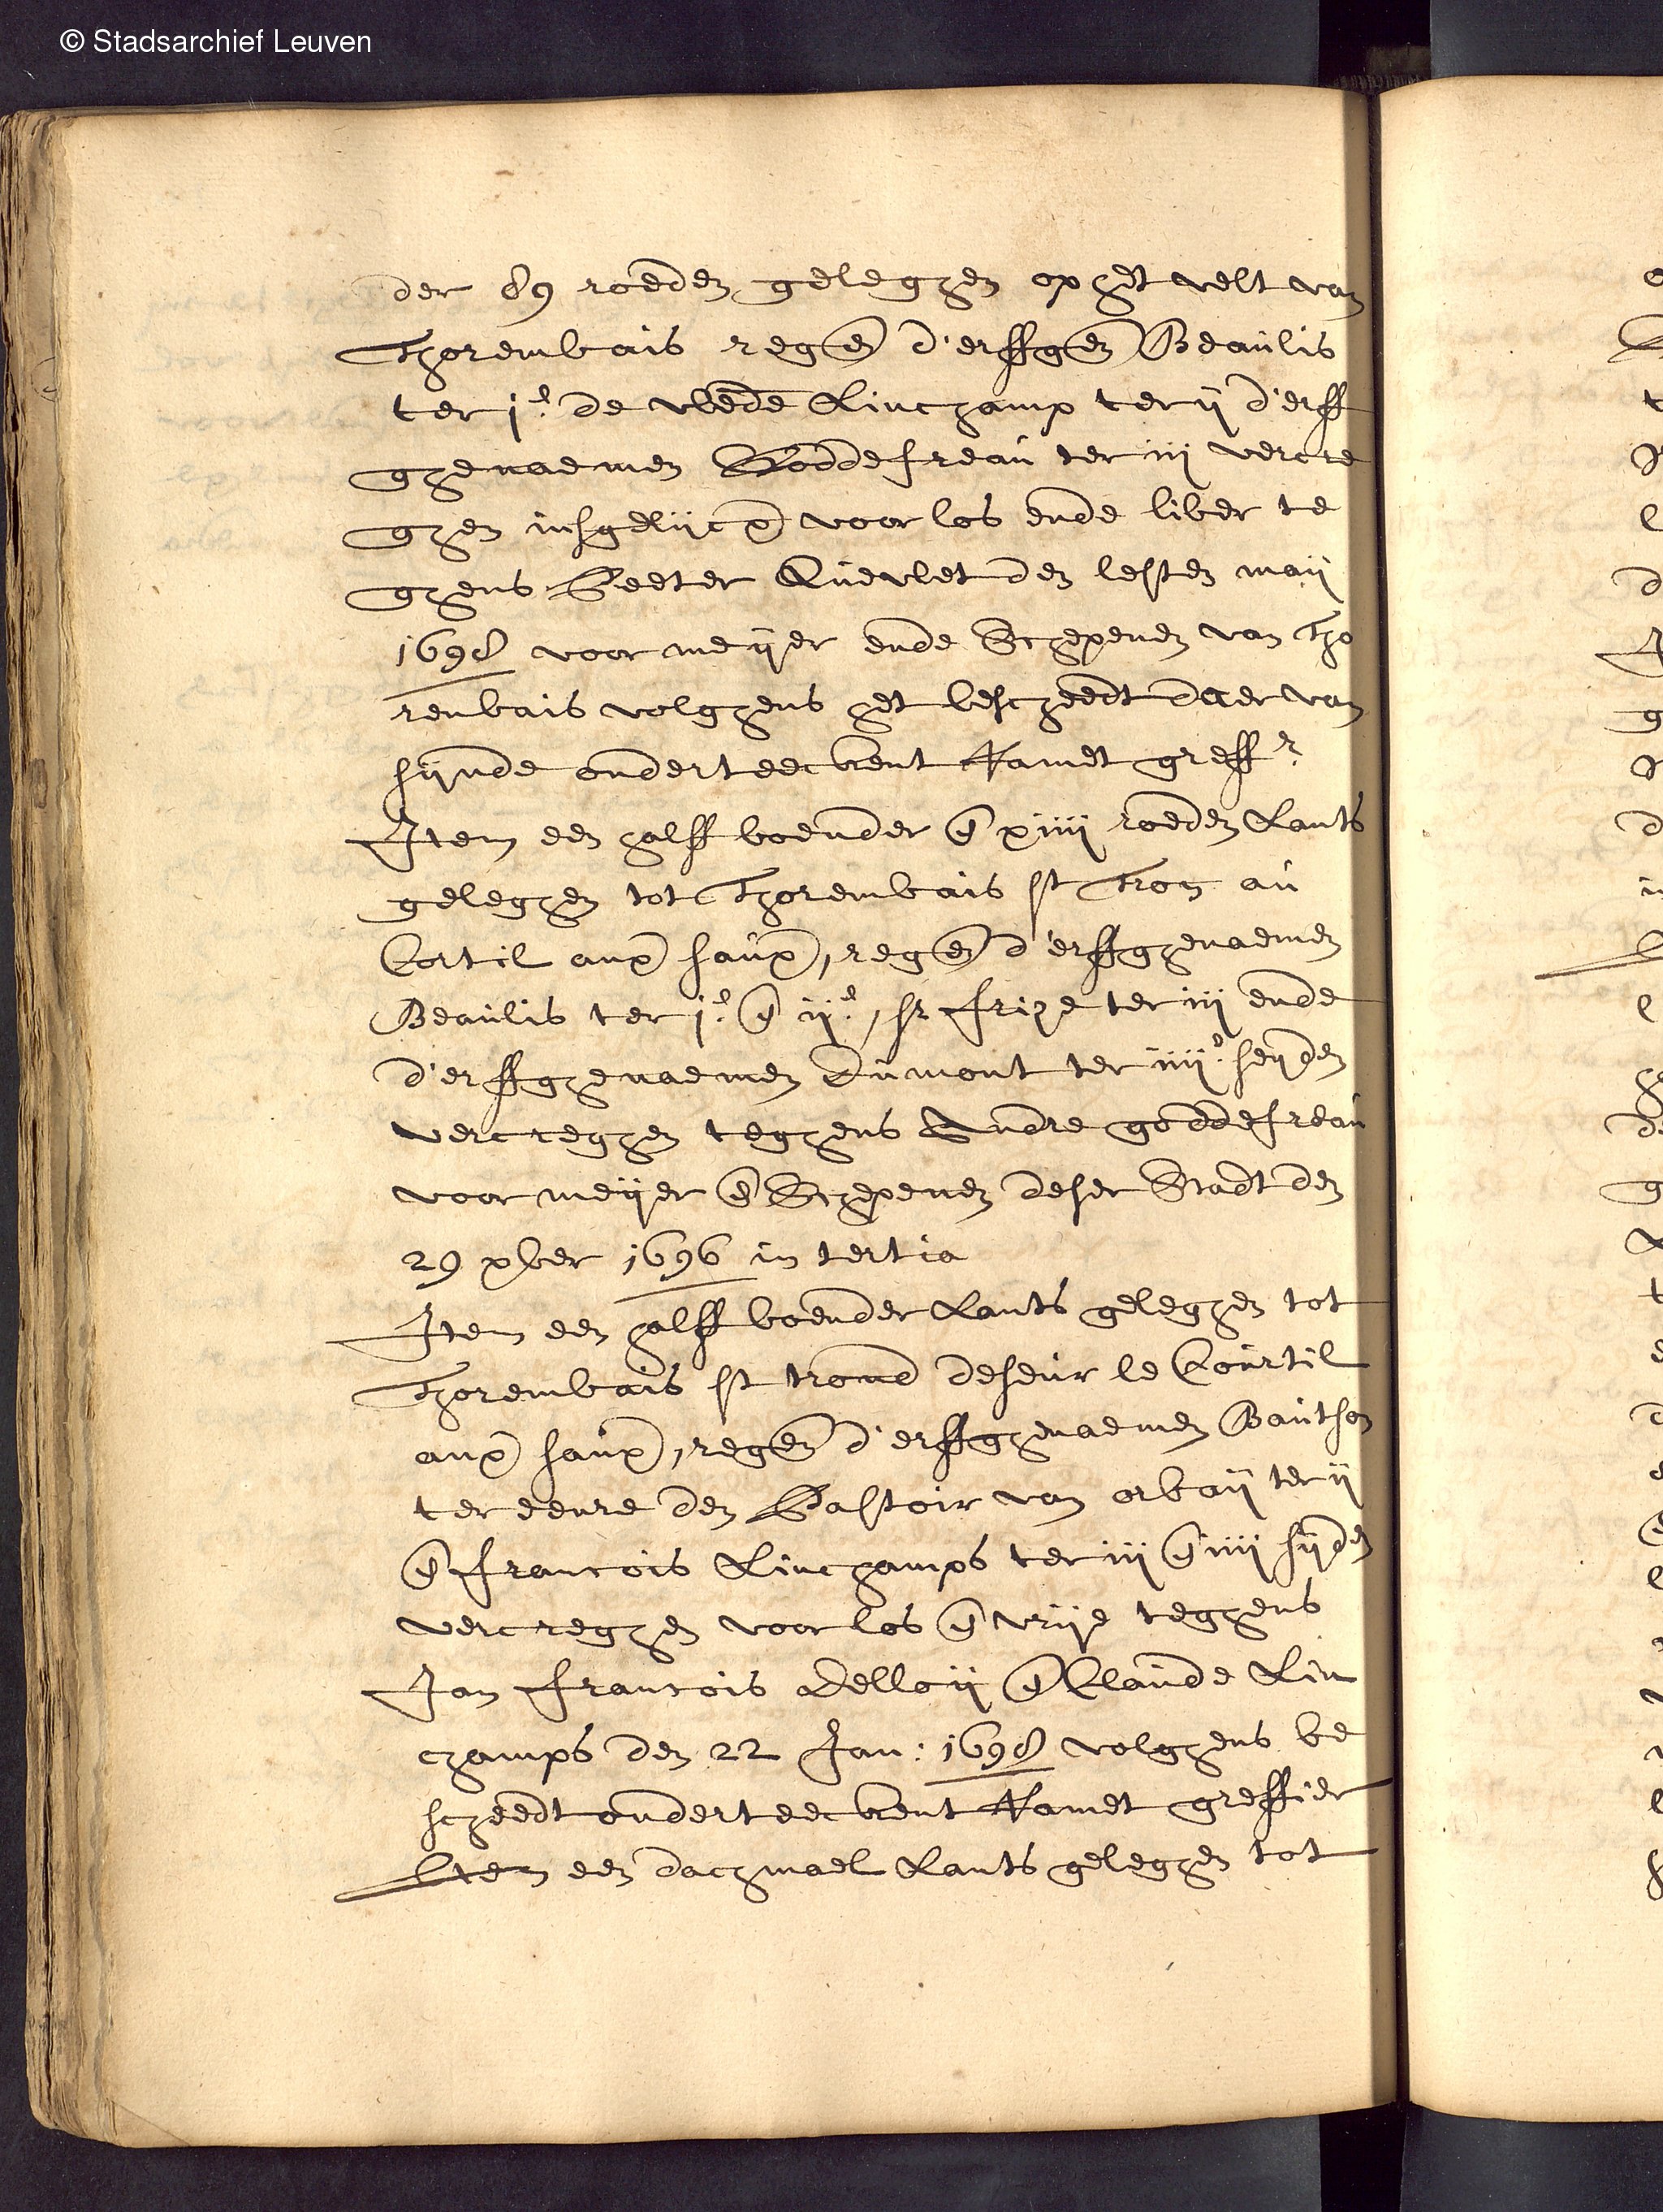 © Stadsarchief Leuven
der 89 roeden geleghen op het velt van
Thorembais regen d'erffgen Beaulis
ter j.e de wede Linchamp ter ij d'erff
ghenaemen Goddefreau ter iij vercre
ghen insgelijcx voor los ende liber te
ghens Peeter Quevlet den lesten maij
1698 voor meijer ende Schepenen van Tho
renbais volghens het bescheedt daer van
sijnde onderteeckent Hamet greff.r
Item een halff boender en xiiij roeden Lants
geleghen tot Thorembais st Tron au
Cortil aux saux, regen d'erffghenaemen
Beaulis ter j.e en ij.e, sr frize ter iij ende
d'erffghenaemen Dumont ter iiij.e seijden
vercreghen teghens Andre goddefreau
voor meijer en Schepenen deser Stadt den
29 xber 1696 in tertia
Item een halff boender Lants geleghen tot
Thorembais st trond deseur le Courtil
aux saux, regen d'erffghenaemen Bautson
ter eenre den Pastoir van orbaij ter ij
en francois Linchamps ter iij en iiij sijden
vercreghen voor los en vrije teghens
Jan francois Delloij en Claude Lin
champs den 22 Jan: 1698 volghens be
scheedt onderteeckent Hamet greffier
Item een dachmael Lants geleghen tot